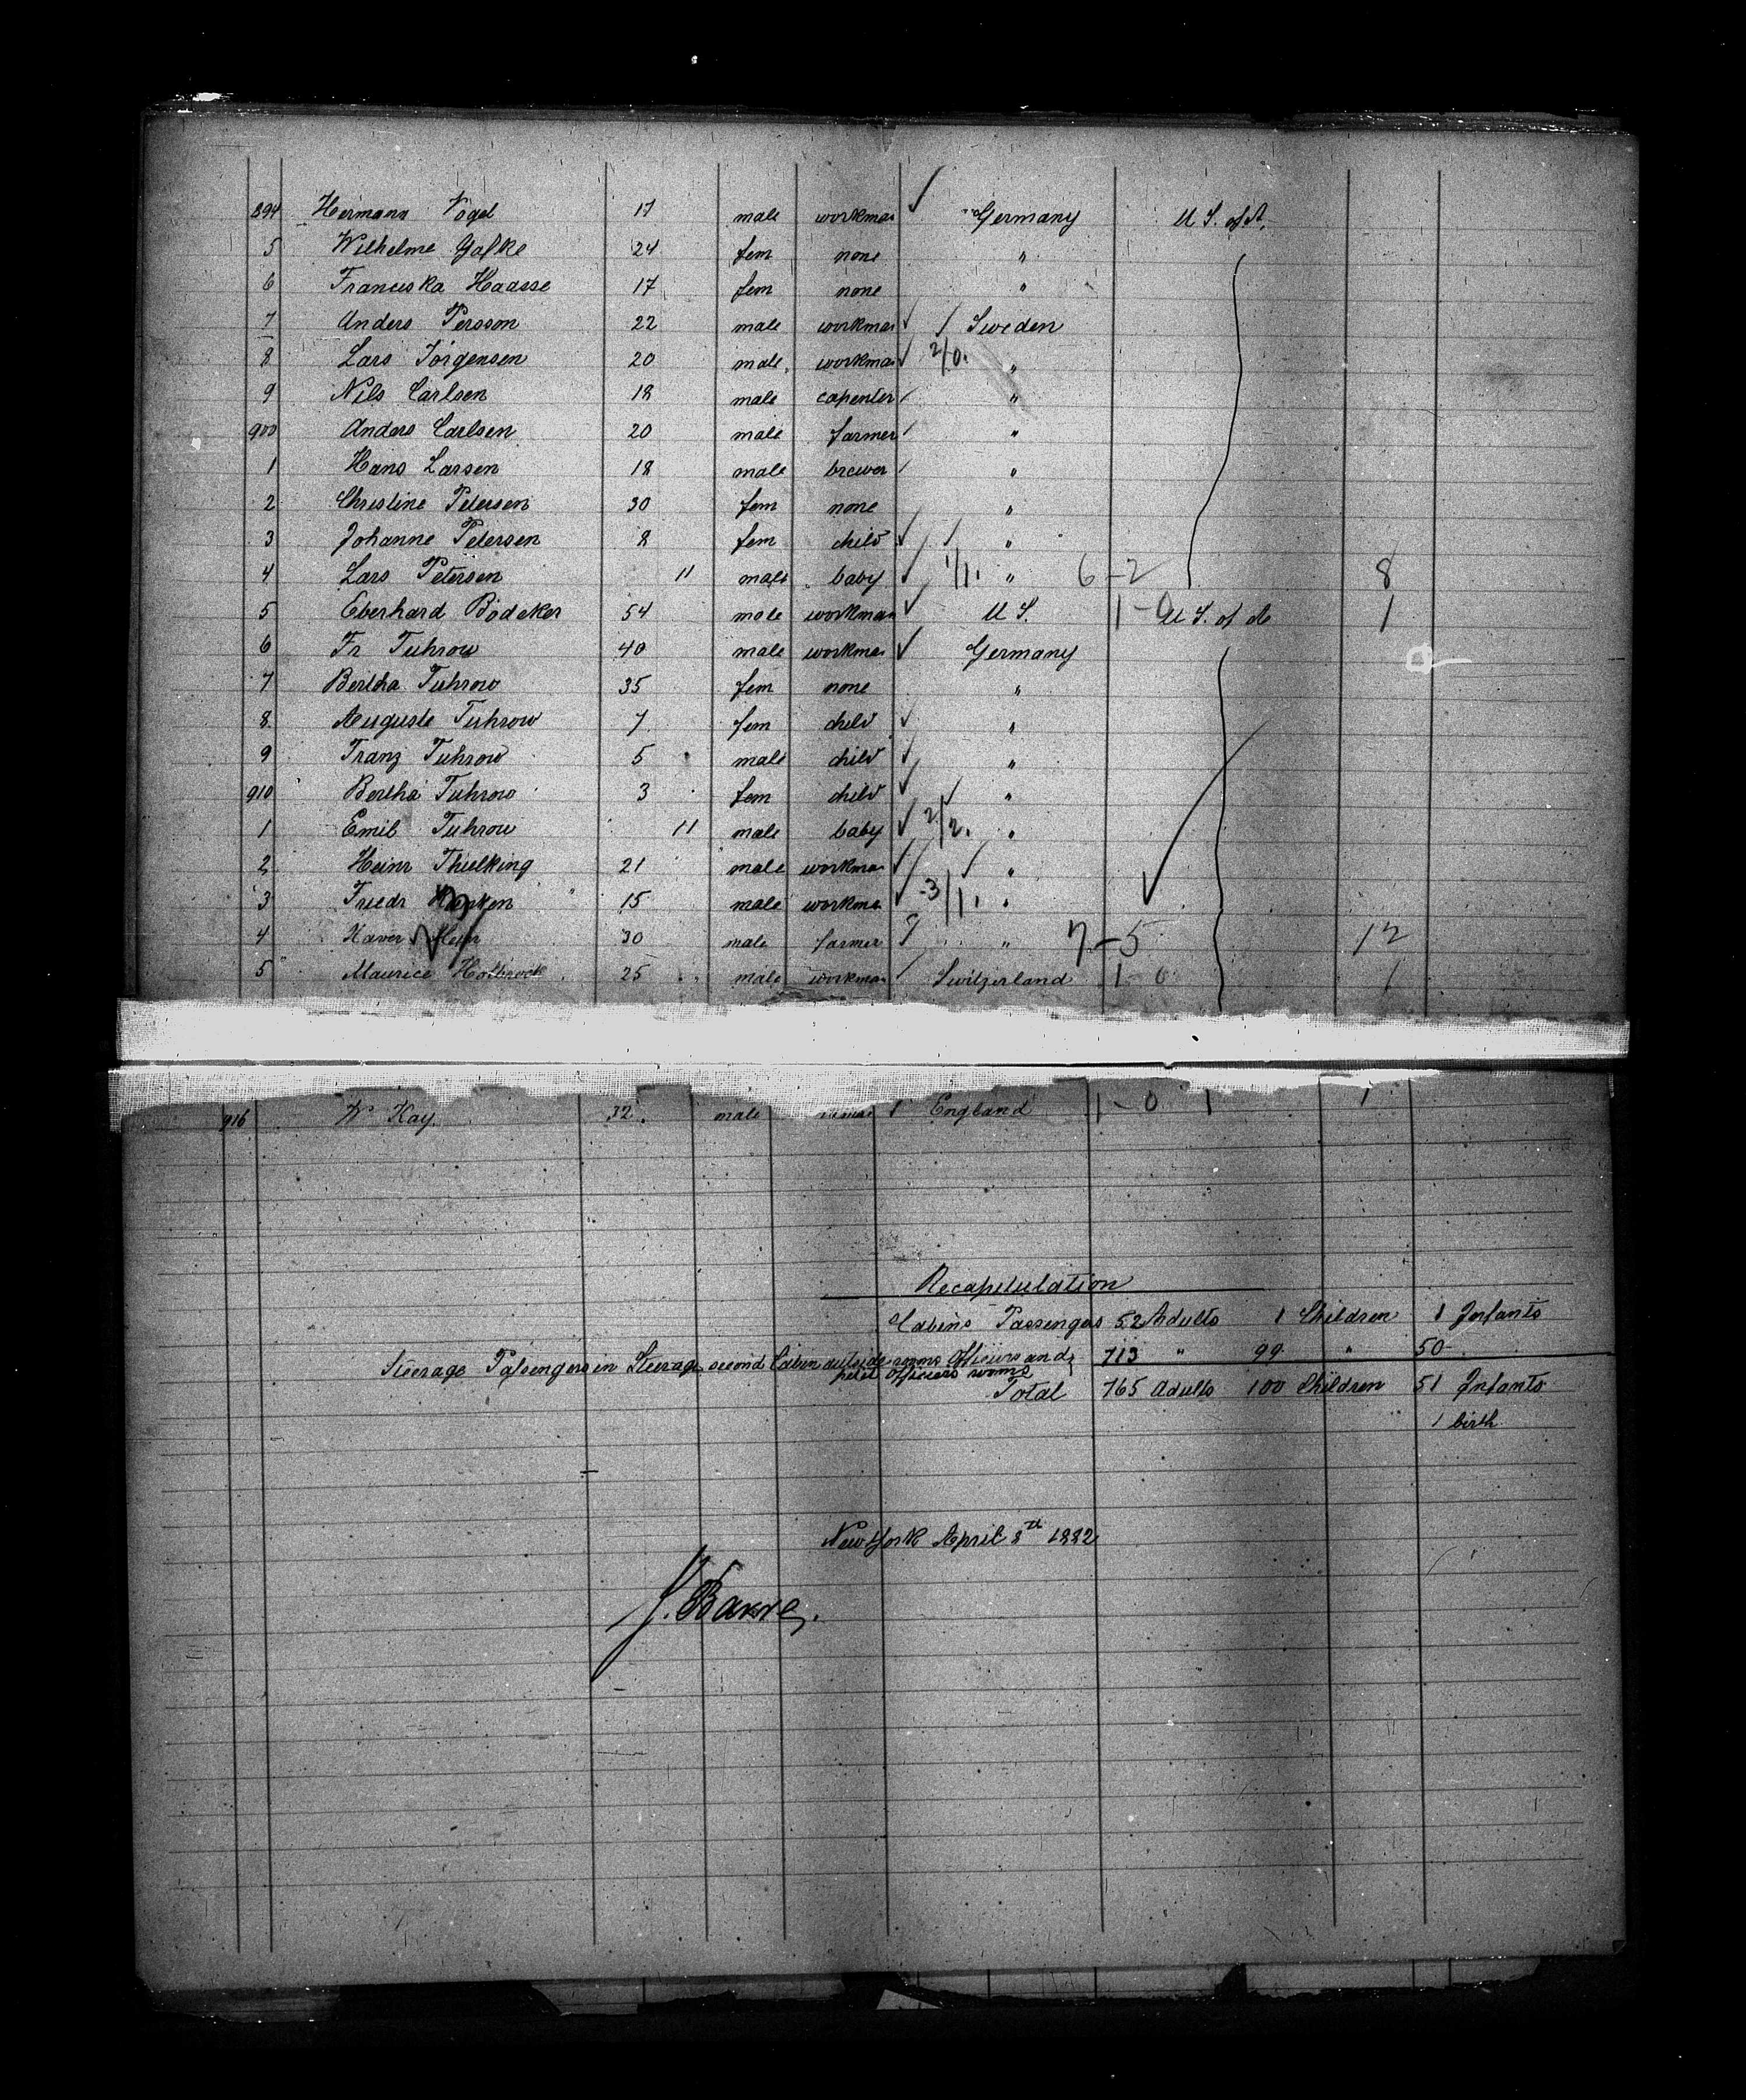 894 Hermann Vogel 17 male workman ✓ Germany U S. of A.
5 Wilhelme Gafke 24 fem none "
6 Franciska Haasse 17 fem none "
7 Anders Persson 22 male workman ✓ / Sweden
8 Lars Jörgensen 20 male workman ✓ 2/0. "
9 Nils Carlsen 18 male capenter "
900 Anders Carlsen 20 male farmer "
1 Hans Larsen 18 male brewer "
2 Christine Petersen 30 fem none "
3 Johanne Petersen 8 fem child ✓ / "
4 Lars Petersen 11 male baby ✓ 1/1. " 6-2 8
5 Eberhard Bödeker 54 male workman ✓ U S. 1-0 U S. of A 1
6 Fr Tuhrow 40 male workman ✓ Germany
7 Bertha Tuhrow 35 fem none "
8 Auguste Tuhrow 7 fem child ✓ "
9 Franz Tuhrow 5 male child ✓ "
910 Bertha Tuhrow 3 fem child ✓ ✓ "
1 Emil Tuhrow 11 male baby ✓ 2/2. "
2 Heinr Thielking 21 male workman ✓ / "
3 Friedr 15 male workman ✓ 3/1. "
4 Xaver 30 male farmer " 7-5 12
5 Maurice Holbrock 25 male workman Switzerland 1-0 1
916 W Kay. 32. male England 1-0 1 1
Recapitulation
Cabins Passengers 52 Adults 1 Children 1 Infants
Steerage Passengers in Steerage second Cabin outside rooms Officiers and 713 " 99 " 50
petit officiers rooms
Total 765 Adults 100 Children 51 Infants
1 birth
New York April 8th 1882
J. Barre.